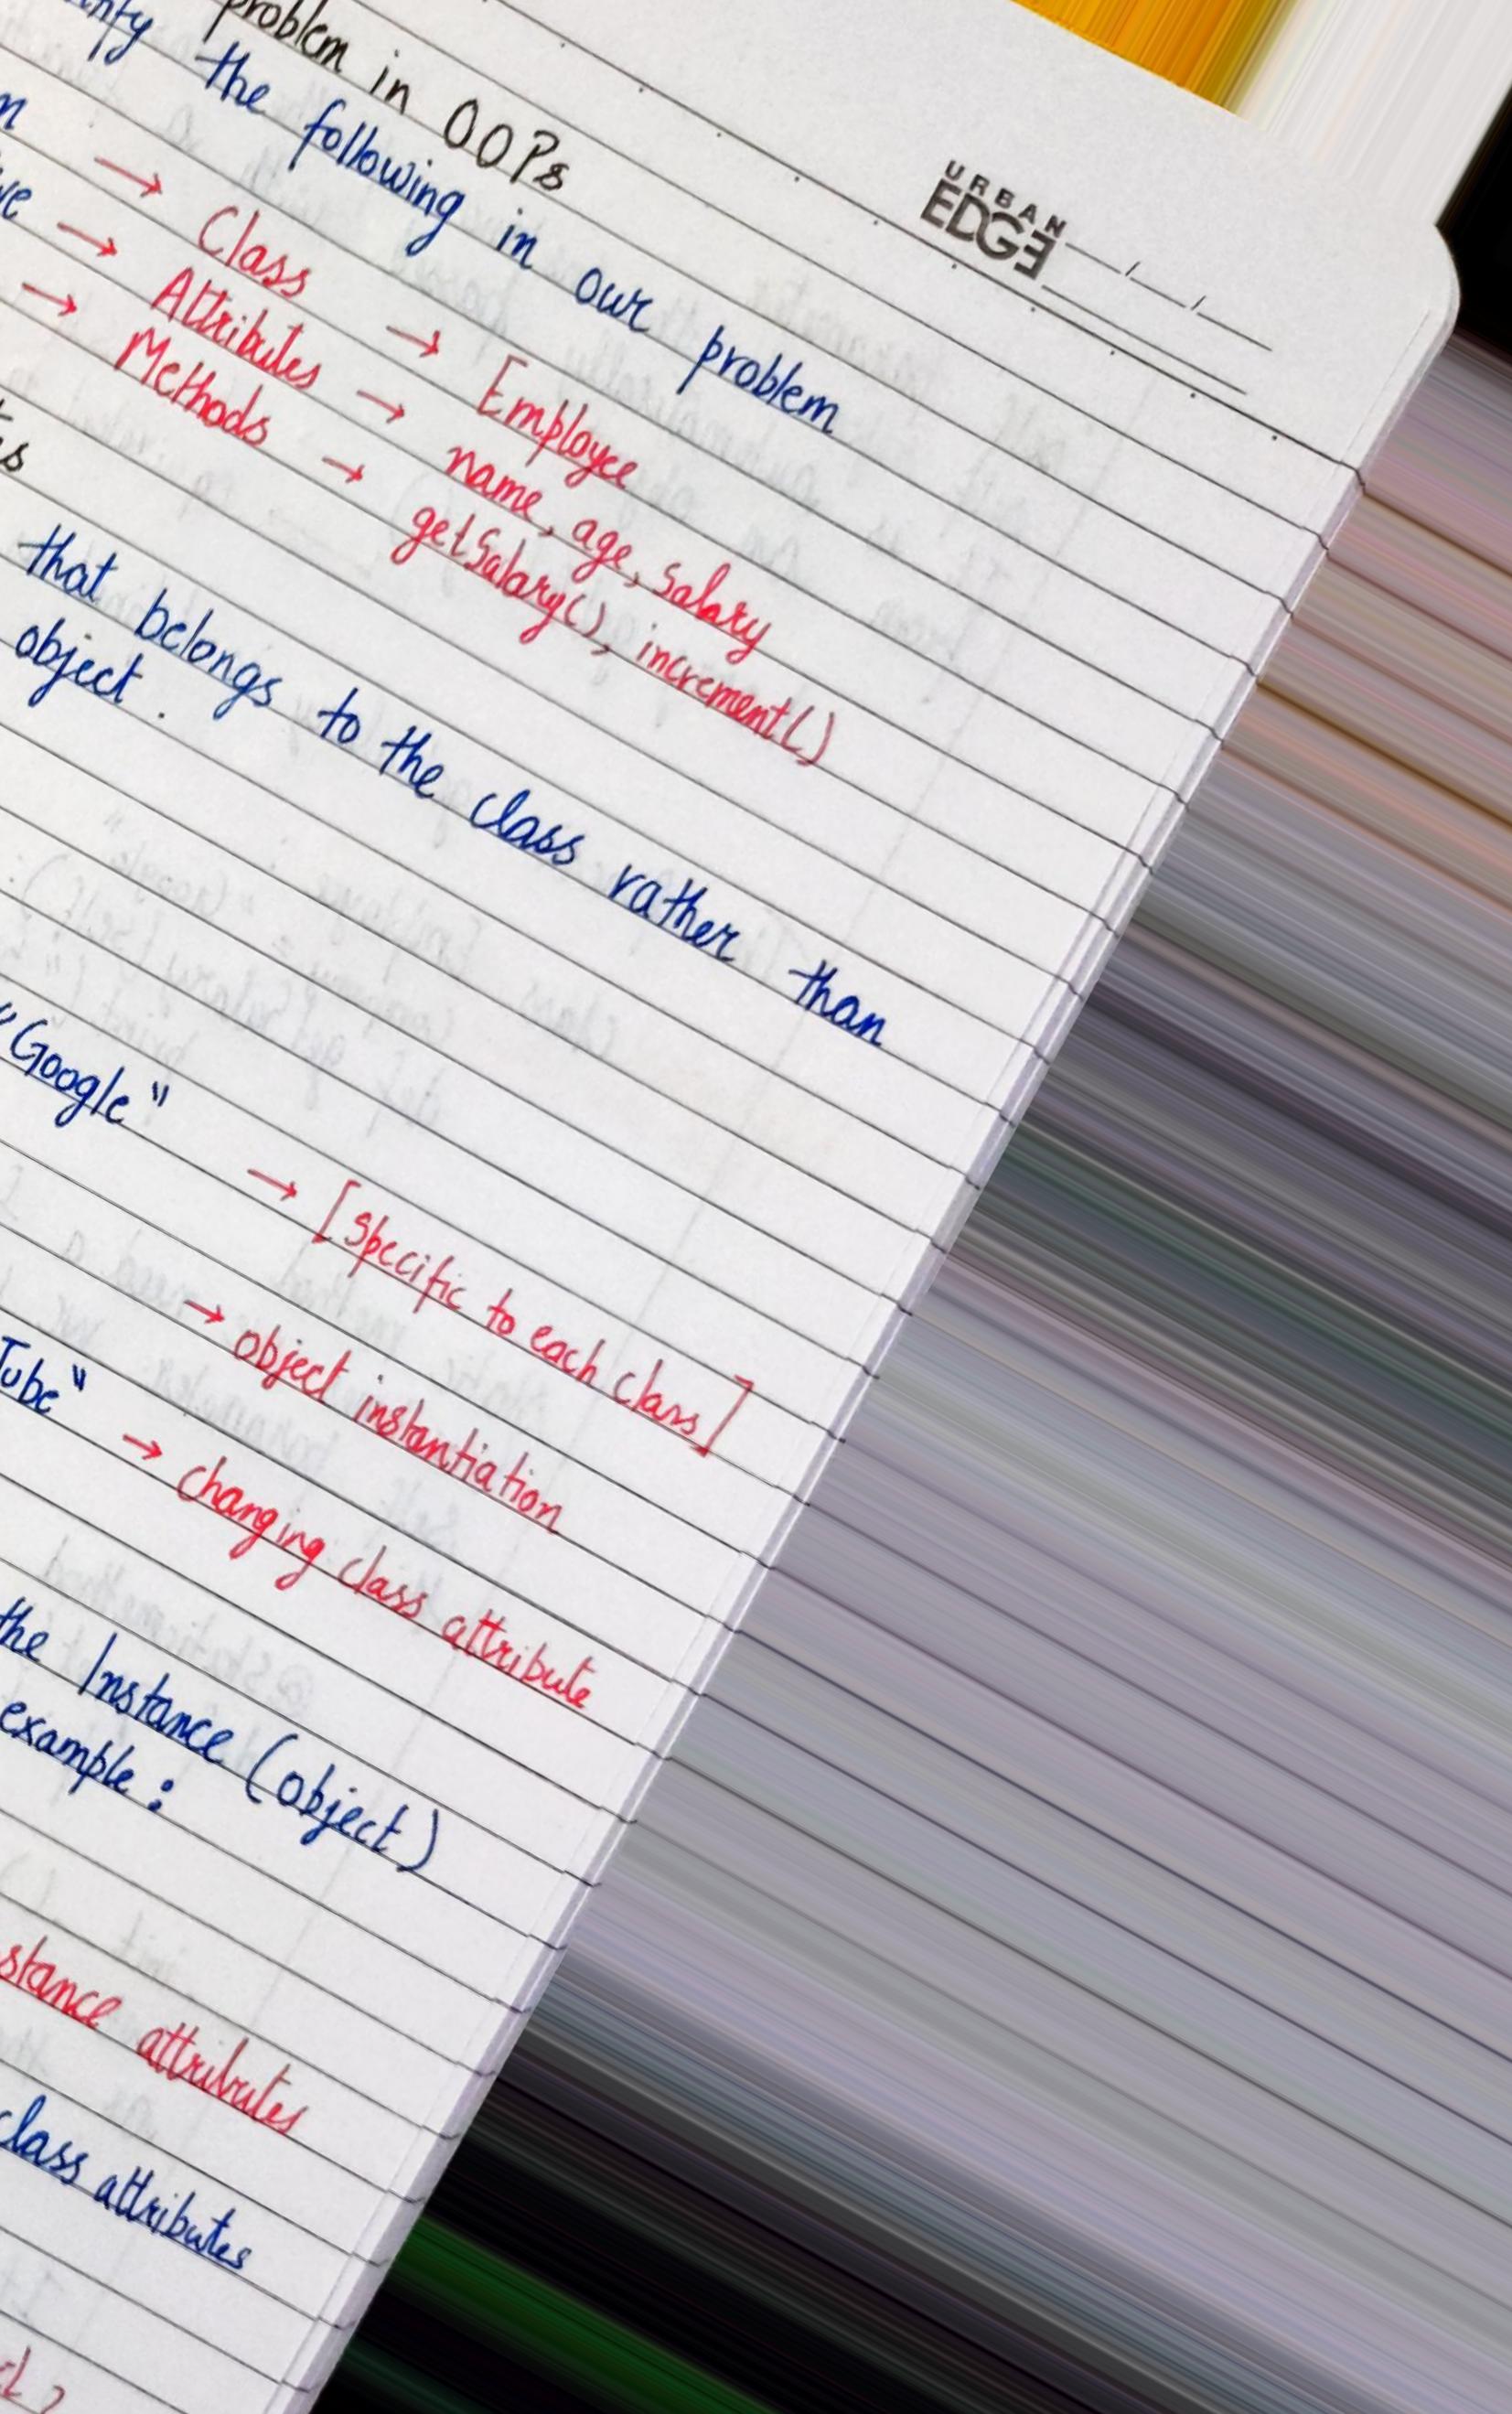 problem in OOPs
URBAN
EDGE
the following in our problem
→ Class → Employee
→ Attributes → name, age, salary
→ Methods → getSalary(), increment()
that belongs to the class rather than
object.
"Google"
→ [specific to each class]
→ object instantiation
Tube"
→ changing class attribute
the Instance (object)
example :
attributes
class attributes